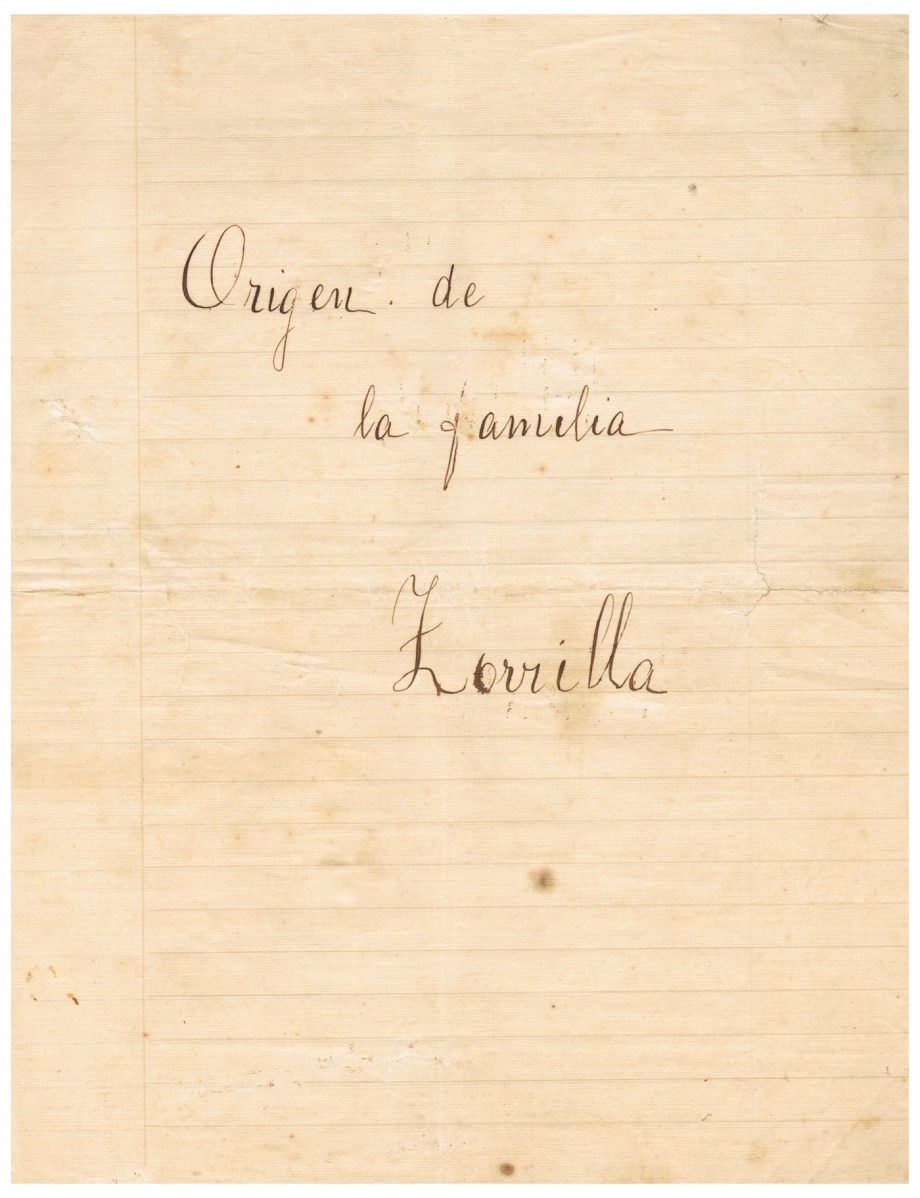 Origen de
la familia
Zorrilla